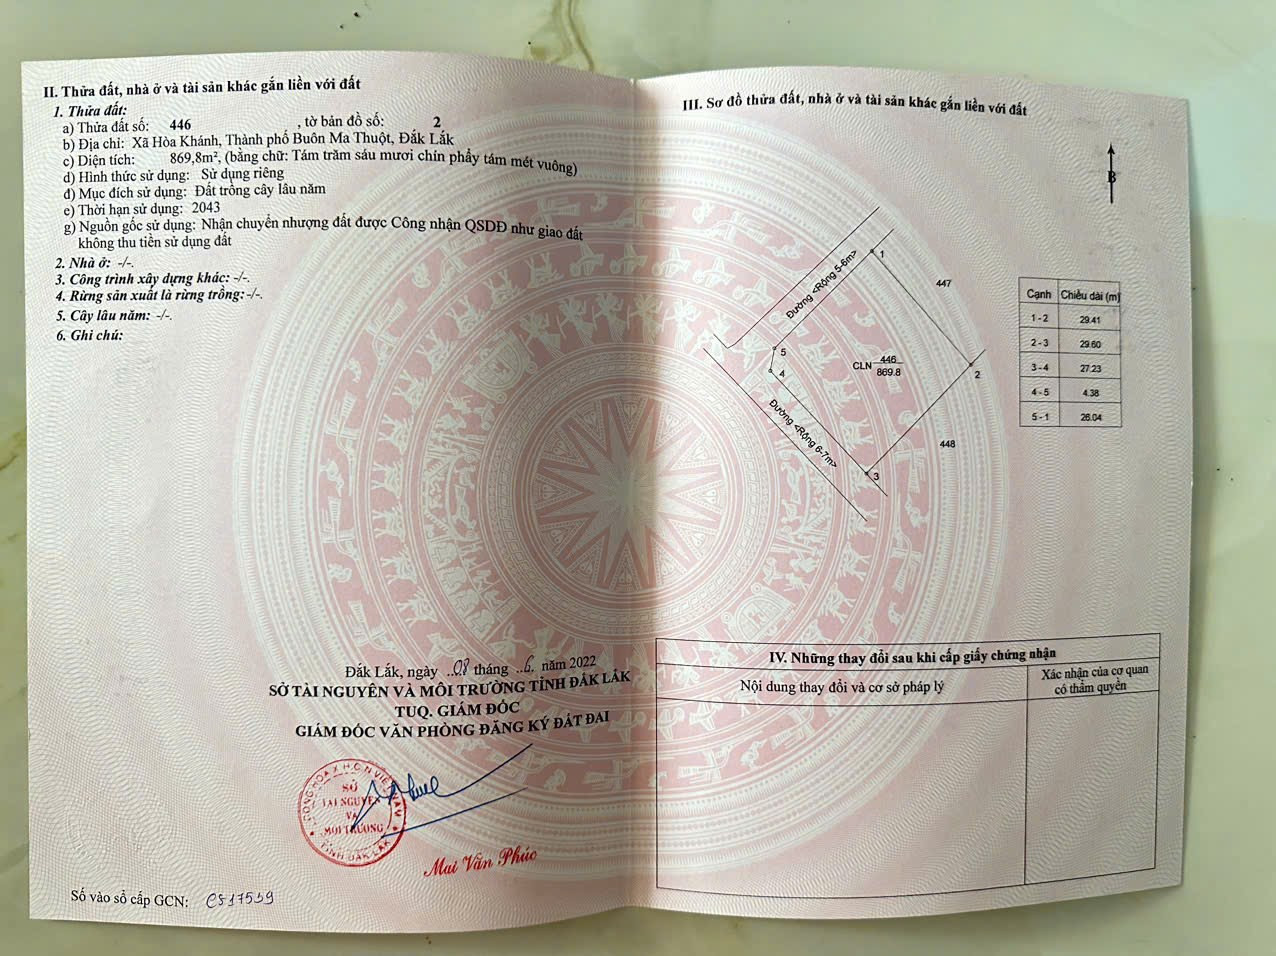 II. Thửa đất, nhà ở và tài sản khác gắn liền với đất
1. Thửa đất:
a) Thửa đất số: 446 , tờ bản đồ số: 2
b) Địa chỉ: Xã Hòa Khánh, Thành phố Buôn Ma Thuột, Đắk Lắk
c) Diện tích: 869,8m², (bằng chữ: Tám trăm sáu mươi chín phẩy tám mét vuông)
d) Hình thức sử dụng: Sử dụng riêng
đ) Mục đích sử dụng: Đất trồng cây lâu năm
e) Thời hạn sử dụng: 2043
g) Nguồn gốc sử dụng: Nhận chuyển nhượng đất được Công nhận QSDĐ như giao đất
không thu tiền sử dụng đất
2. Nhà ở: -/-.
3. Công trình xây dựng khác: -/-.
4. Rừng sản xuất là rừng trồng: -/-.
5. Cây lâu năm: -/-.
6. Ghi chú:
Đắk Lắk, ngày ..08 tháng ..6. năm 2022
SỞ TÀI NGUYÊN VÀ MÔI TRƯỜNG TỈNH ĐẮK LẮK
TUQ. GIÁM ĐỐC
GIÁM ĐỐC VĂN PHÒNG ĐĂNG KÝ ĐẤT ĐAI
CỘNG HÒA X.H.C.N VIỆT NAM
SỞ
TÀI NGUYÊN
VÀ
MÔI TRƯỜNG
TỈNH ĐẮK LẮK
Mai Văn Phúc
Số vào sổ cấp GCN: CS17539
III. Sơ đồ thửa đất, nhà ở và tài sản khác gắn liền với đất
B
Đường <Rộng 5-6m>
1
447
5
4
CLN 446
869.8
2
Đường <Rộng 6-7m>
448
3
Cạnh Chiều dài (m)
1 - 2 29.41
2 - 3 29.60
3 - 4 27.23
4 - 5 4.38
5 - 1 26.04
IV. Những thay đổi sau khi cấp giấy chứng nhận
Nội dung thay đổi và cơ sở pháp lý
Xác nhận của cơ quan
có thẩm quyền